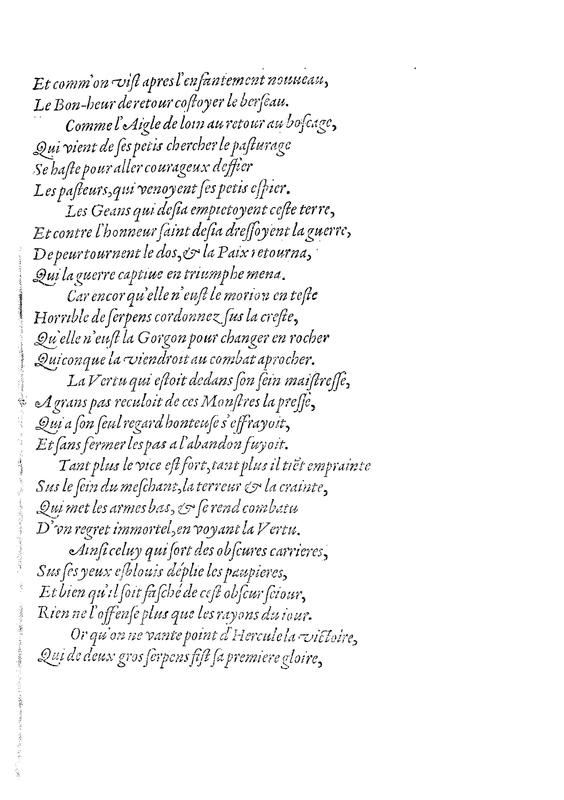 Et comm'on viſt apres l'enfantement nouueau,
Le Bon-heur de retour coſtoyer le berſeau.
Comme l'Aigle de loin au retour au boſcage,
Qui vient de ſes petis chercher le paſturage
Se haſte pour aller courageux deffier
Les paſteurs, qui venoyent ſes petis eſpier.
Les Geans qui deſia empietoyent ceſte terre,
Et contre l'honneur ſaint deſia dreſſoyent la guerre,
De peur tournent le dos, & la Paix retourna,
Qui la guerre captiue en triumphe mena.
Car encor qu'elle n'euſt le morion en teſte
Horrible de ſerpens cordonnez ſus la creſte,
Qu'elle n'euſt la Gorgon pour changer en rocher
Quiconque la viendroit au combat aprocher.
La Vertu qui eſtoit dedans ſon ſein maiſtreſſe,
A grans pas reculoit de ces Monſtres la preſſe,
Qui a ſon ſeul regard honteuſe s'effrayoit,
Et ſans fermer les pas a l'abandon fuyoit.
Tant plus le vice eſt fort, tant plus il tiẽt emprainte
Sus le ſein du meſchant, la terreur & la crainte,
Qui met les armes bas, & ſe rend combatu
D'vn regret immortel, en voyant la Vertu.
Ainſi celuy qui ſort des obſcures carrieres,
Sus ſes yeux eſblouis déplie les paupieres,
Et bien qu'il ſoit faſché de ceſt obſcur ſeiour,
Rien ne l'offenſe plus que les rayons du iour.
Or qu'on ne vante point d'Hercule la victoire,
Qui de deux gros ſerpens fiſt ſa premiere gloire,